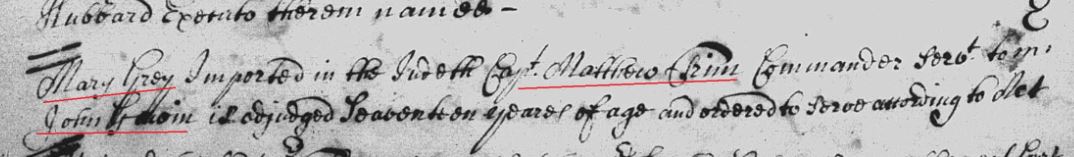 Hubbard Executo therein named -
Mary Grey Imported in the Judeth Capt. Matthew Trim Commander Servt. to mr
John is adjudged Seaventeen yeares of age and ordered to Serve according to Act